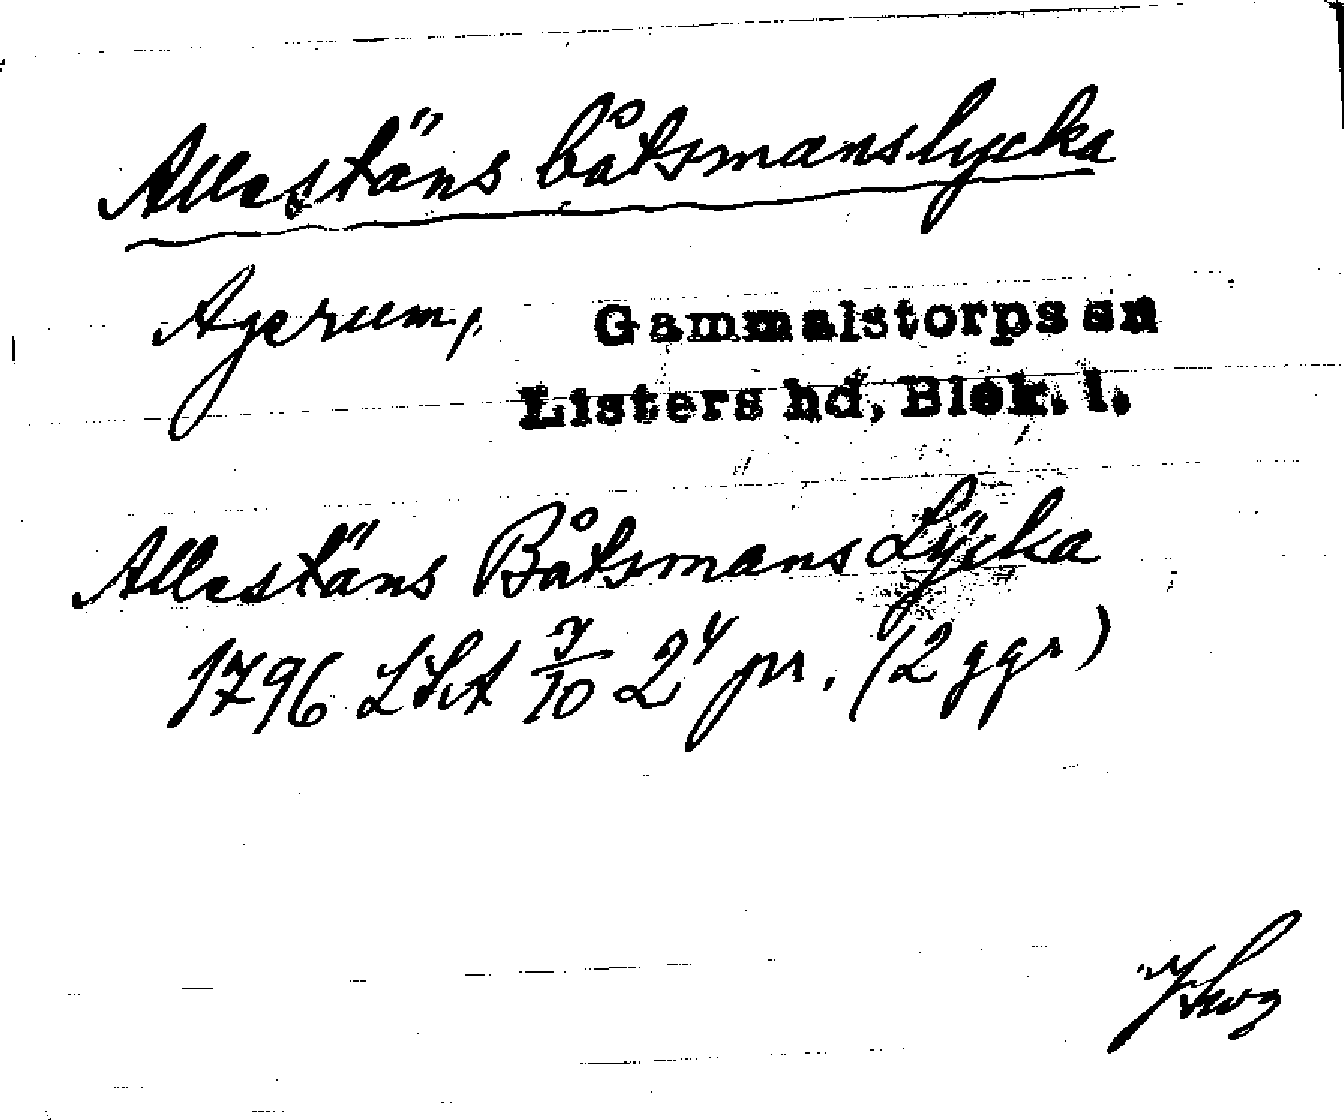 Allestäns båtsmanslycka
Agerum, Gammalstorps sn
Listers hd, Blek. l.
Allestäns Båtsmans Lÿcka
1796 LSA 7/10 2⁴ pr. (2 ggr)